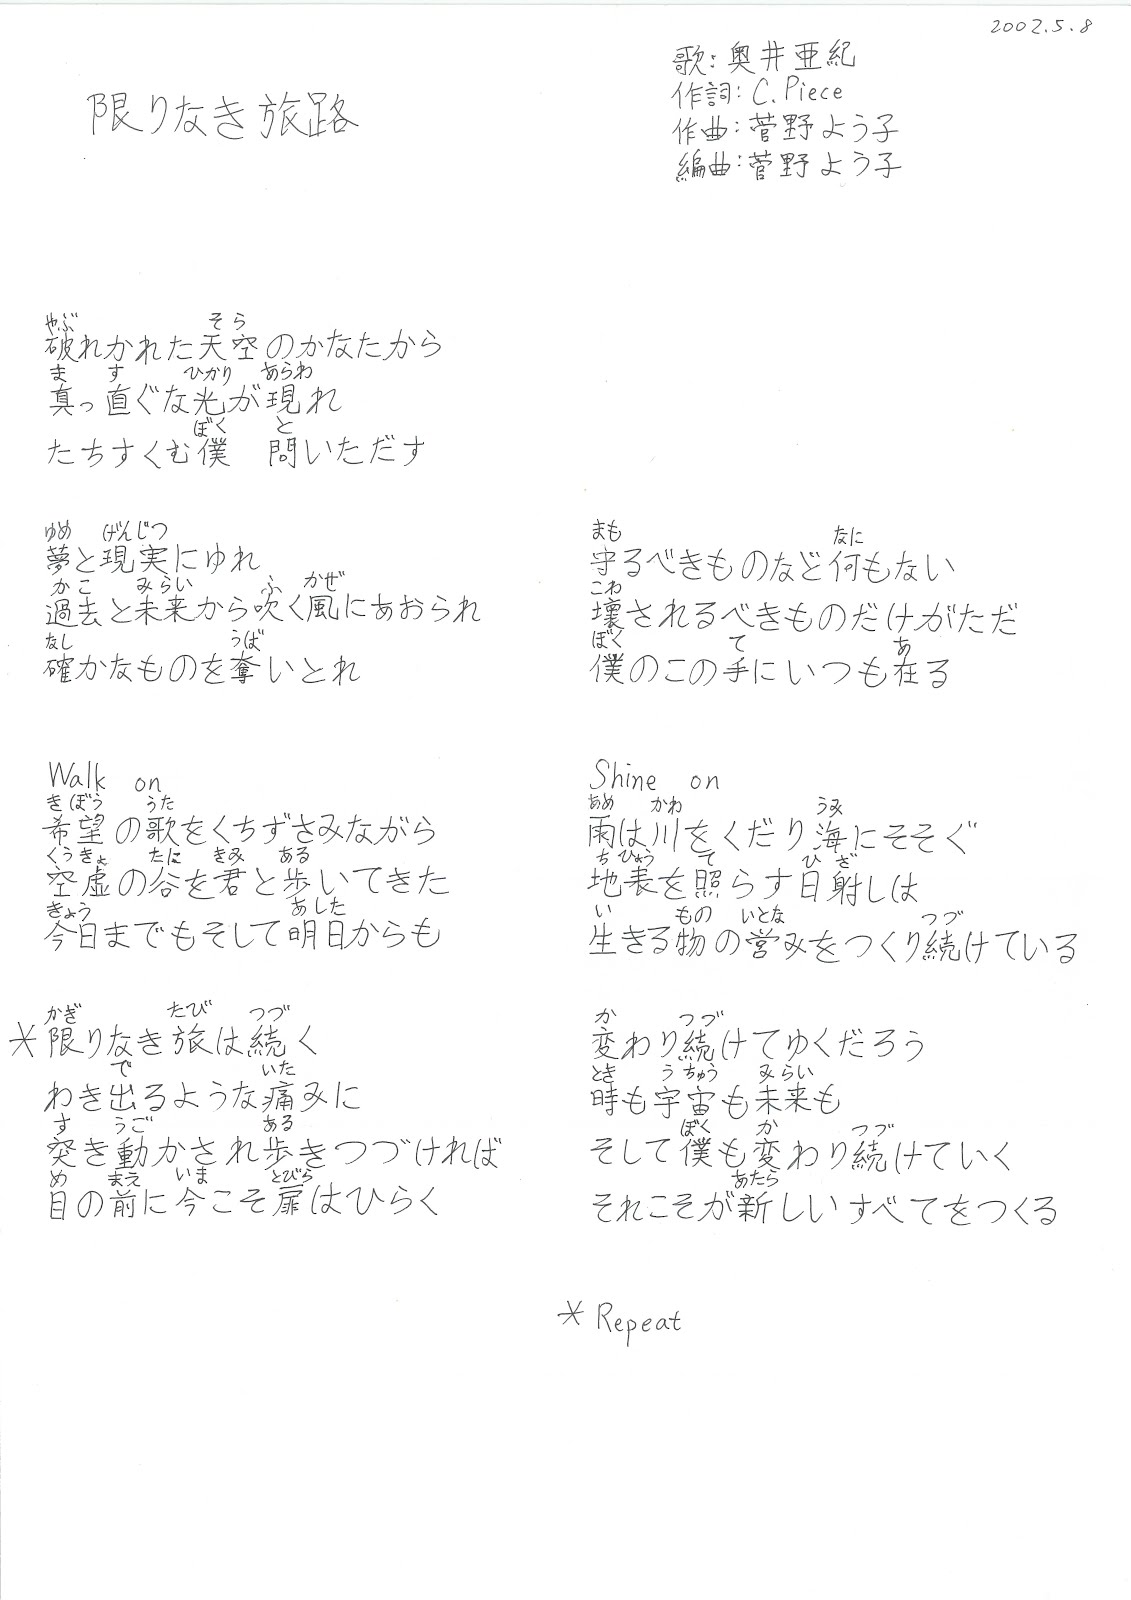 2002.5.8
限りなき旅路
歌:奥井亜紀
作詞:C.Piece
作曲:菅野よう子
編曲:菅野よう子
やぶ そら
破れかれた天空のかなたから
ま す ひかり あらわ
真っ直ぐな光が現れ
ぼく と
たちすくむ僕 問いただす
ゆめ げんじつ
夢と現実にゆれ
かこ みらい ふ かぜ
過去と未来から吹く風にあおられ
なし うば
確かなものを奪いとれ
Walk on
きぼう うた
希望の歌をくちずさみながら
くうきょ たに きみ ある
空虚の谷を君と歩いてきた
きょう あした
今日までもそして明日からも
かぎ たび つづ
*限りなき旅は続く
で いた
わき出るような痛みに
す うご ある
突き動かされ歩きつづければ
め まえ いま とびら
目の前に今こそ扉はひらく
まも なに
守るべきものなど何もない
こわ
壊されるべきものだけがただ
ぼく て あ
僕のこの手にいつも在る
Shine on
あめ かわ うみ
雨は川をくだり海にそそぐ
ち ひょう て ひ ざ
地表を照らす日射しは
い もの いとな つづ
生きる物の営みをつくり続けている
か つづ
変わり続けてゆくだろう
とき う ちゅう みらい
時も宇宙も未来も
ぼく か つづ
そして僕も変わり続けていく
あたら
それこそが新しいすべてをつくる
* Repeat